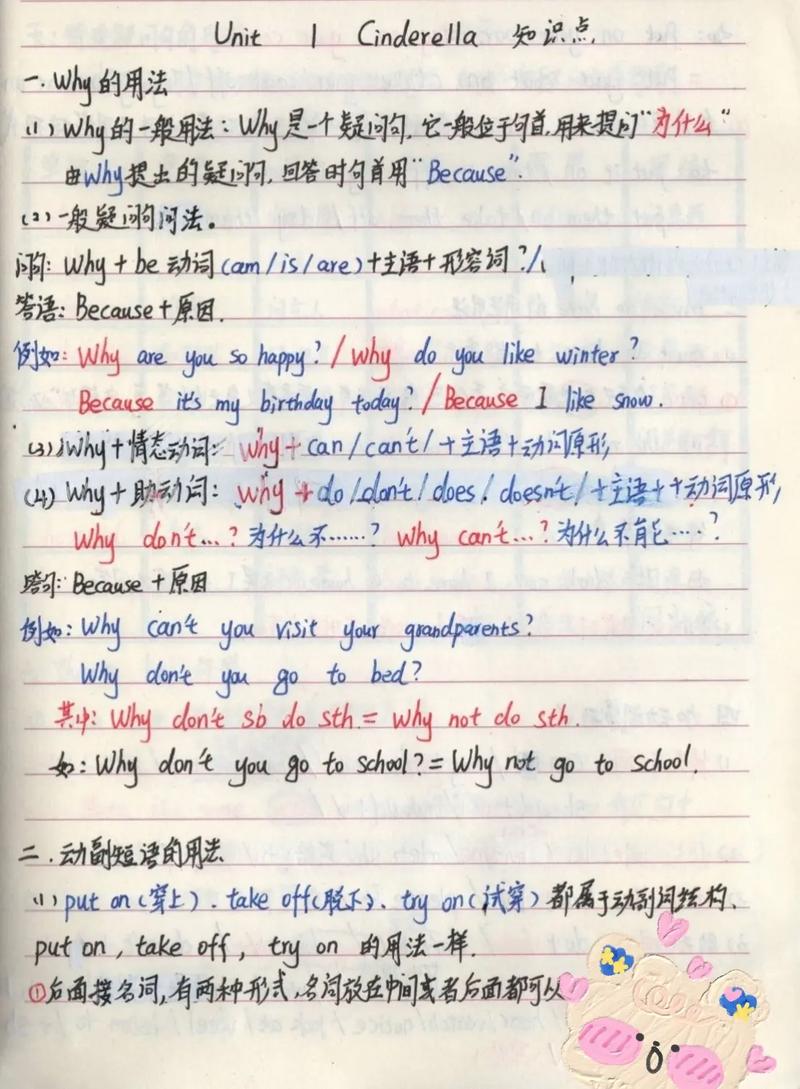 Unit 1 Cinderella 知识点
一.Why的用法
(1) Why的一般用法:Why是一个疑问句,它一般位于句首,用来提问"为什么"
由why提出的疑问句,回答时句首用"Because".
(2)一般疑问句问法。
问句: Why + be 动词 (am/is/are)+主语+形容词?/
答语: Because+原因.
例如: Why are you so happy? / Why do you like winter?
Because it's my birthday today? / Because I like snow.
(3) Why+情态动词: why+can/can't/+主语+动词原形,
(4) Why+助动词: why+do/don't/does/doesn't/+主语++动词原形,
Why don't...? 为什么不……? Why can't...? 为什么不能……?
答句: Because+原因
例如: Why can't you visit your grandparents?
Why don't you go to bed?
其中: Why don't sb do sth = Why not do sth.
如: Why don't you go to school? = Why not go to school.
二.动副短语的用法
(1) put on(穿上). take off(脱下). try on(试穿) 都属于动副词结构、
put on, take off, try on 的用法一样.
①后面接名词,有两种形式,名词放在中间或者后面都可以